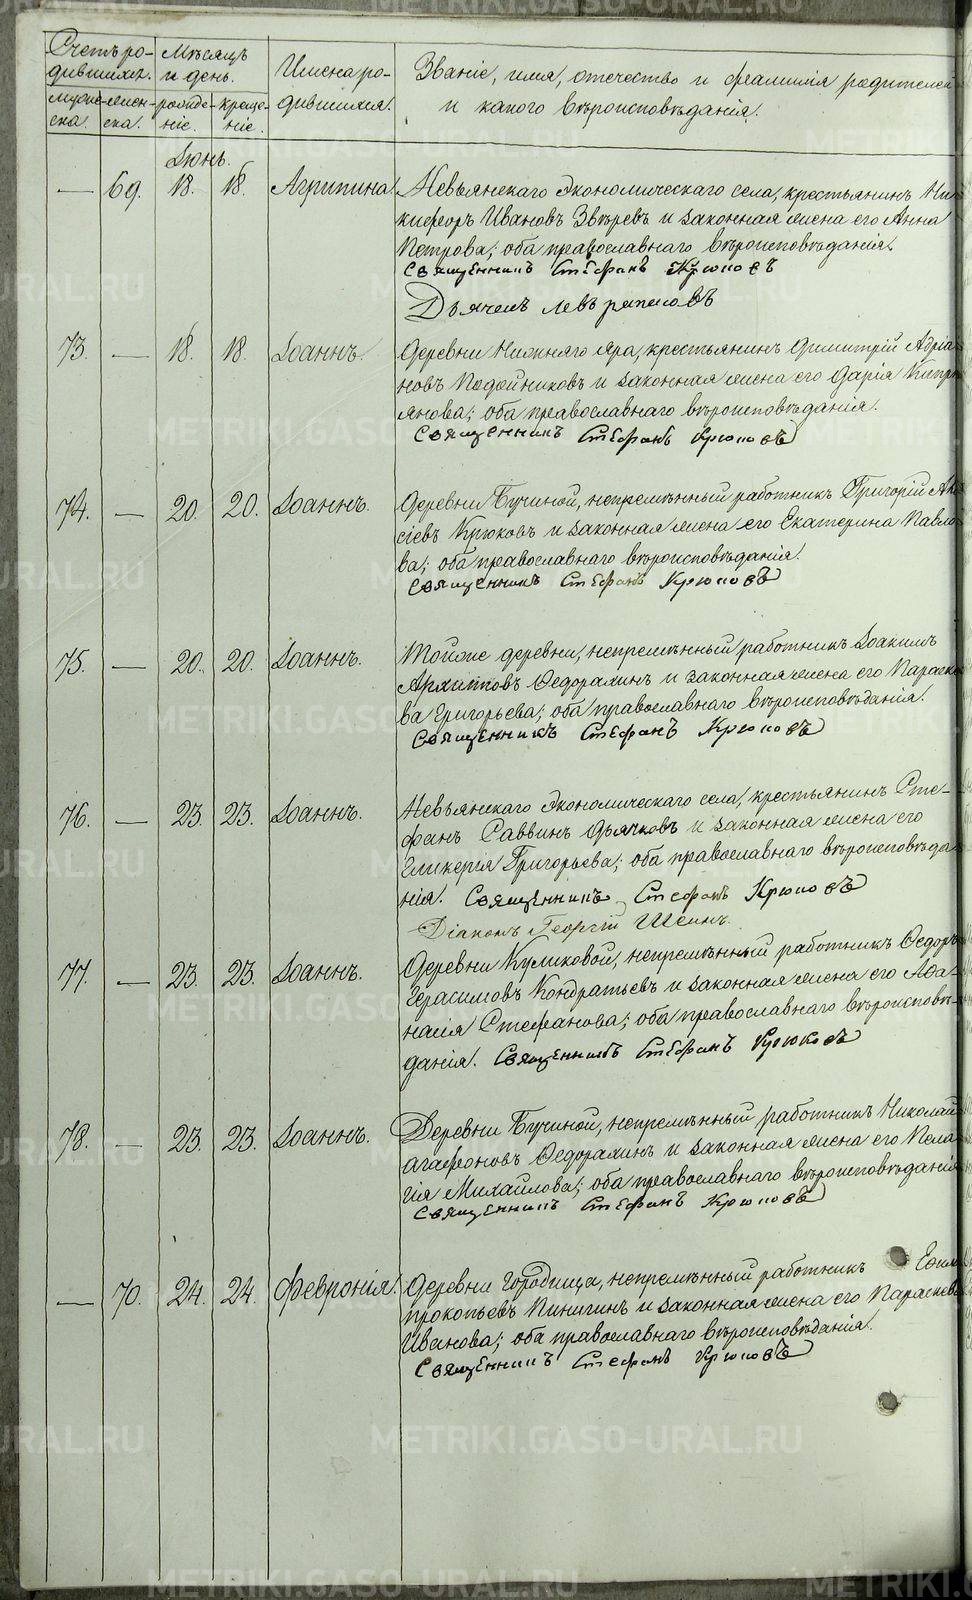 Счетъ ро-
дившихся.
Мѣсяцъ
и день.
Имена ро-
дившихся.
Званіе, имя, отечество и фамилія родителей
и какого вѣроисповѣданія.
Мужес-
ска.
Жен-
ска.
рожде-
ніе.
креще-
ніе.
Іюнь.
— 69. 18. 18. Агрипина. Невьянскаго экономическаго села, крестьянинъ Ни-
кифоръ Ивановъ Звѣревъ и законная жена его Анна
Петрова; оба православнаго вѣроисповѣданія.
Священникъ Стефанъ Крюковъ
Дьячекъ Левъ
73. — 18. 18. Іоаннъ. Деревни Нижняго Яра, крестьянинъ Димитрій Адріа-
новъ Подойниковъ и законная жена его Дарія Кипрі-
янова; оба православнаго вѣроисповѣданія.
Священникъ Стефанъ Крюковъ
74. — 20. 20. Іоаннъ. Деревни Бучиной, непремѣнный работникъ Григорій
сіевъ Крюковъ и законная жена его Екатерина Павло-
ва; оба православнаго вѣроисповѣданія.
Священникъ Стефанъ Крюковъ
75. — 20. 20. Іоаннъ. Тойже деревни, непремѣнный работникъ Іоакимъ
Архиповъ Ѳедорахинъ и законная жена его Параске-
ва Григорьева; оба православнаго вѣроисповѣданія.
Священникъ Стефанъ Крюковъ
76. — 23. 23. Іоаннъ. Невьянскаго экономическаго села, крестьянинъ Сте-
фанъ Саввинъ Дьячковъ и законная жена его
Гликерія Григорьева; оба православнаго вѣроисповѣда-
нія. Священникъ Стефанъ Крюковъ
Діаконъ Георгій Шеинъ.
77. — 23. 23. Іоаннъ. Деревни Куликовой, непремѣнный работникъ Ѳедоръ
Герасимовъ Кондратьевъ и законная жена его Аѳа-
насія Стефанова; оба православнаго вѣроисповѣ-
данія. Священникъ Стефанъ Крюковъ
78. — 23. 23. Іоаннъ. Деревни Бучиной, непремѣнный работникъ Николай
Агафоновъ Ѳедорахинъ и законная жена его Пела-
гія Михайлова; оба православнаго вѣроисповѣданія
Священникъ Стефанъ Крюковъ
— 70. 24. 24. Февронія. Деревни Городища, непремѣнный работникъ Ефим
Прокопьевъ Пинигинъ и законная жена его Параскева
Иванова; оба православнаго вѣроисповѣданія.
Священникъ Стефанъ Крюковъ
METRIKI.GASO-URAL.RU